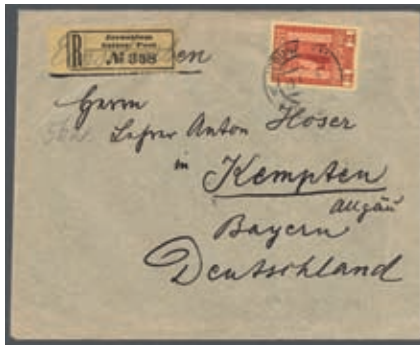 Jerusalem
R No 358
en
Herrn
Lehrer Anton Höser
in
Kempten
Allgäu
Bayern
Deutschland